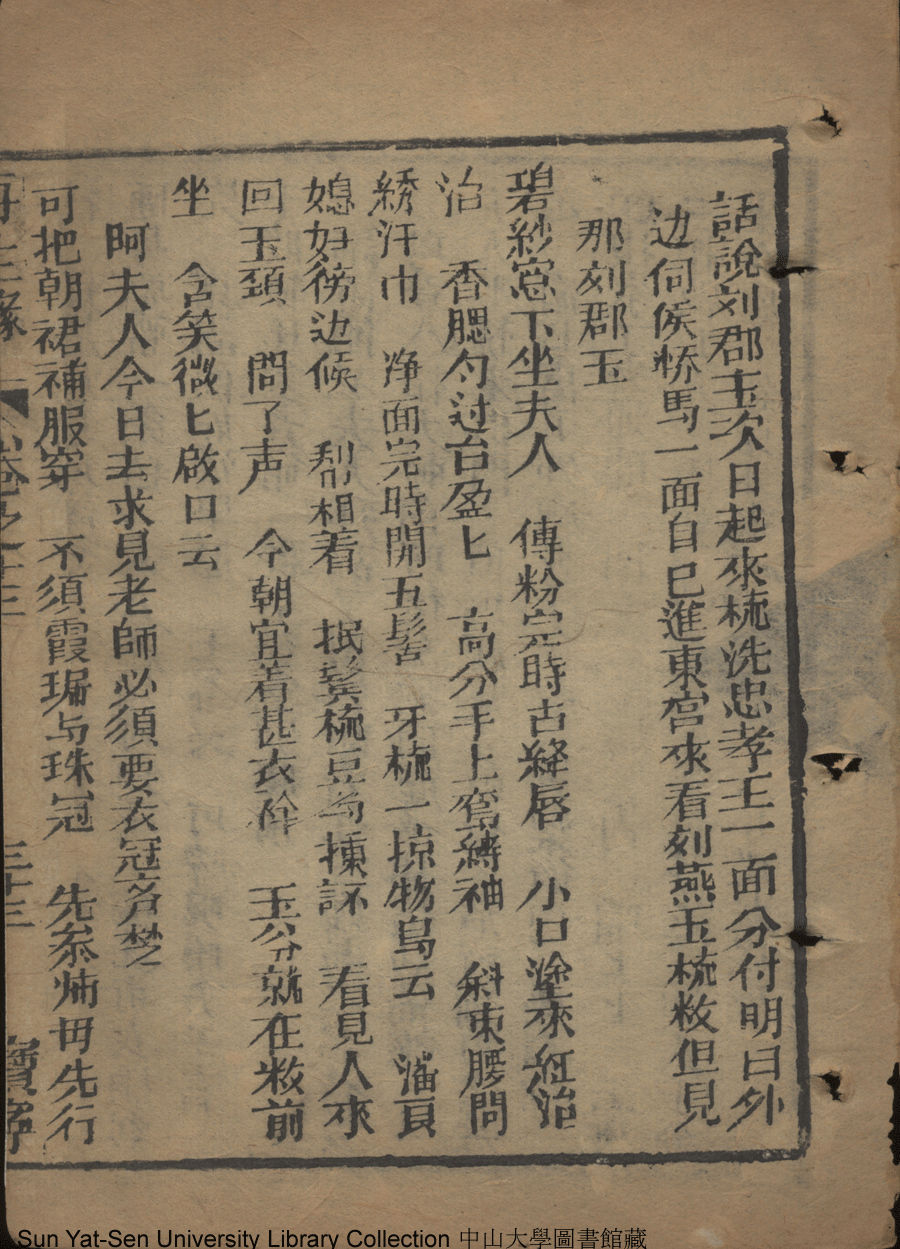 話說刘郡玉次日起來梳洗忠孝王一面分付明白外
边伺侯轿馬一面自己進東宮來看刘燕玉梳粧但見
那刻郡玉
碧紗窓下坐夫人 傅粉完時古絳唇 小口塗來紅治
治 香腮匀过台盈匕 高分手上鴛綉袖 斜束腰間
綉汗巾 净面完時開五髻 牙梳一掠物烏云 滿頁
媳妇徬边候 刮相着 抿鬂梳豆 看見人來
回玉頚 問了声 今朝宜着甚衣 玉分就在粧前
坐 含笑微匕啟口云
阿夫人今日去求見老師必須要衣冠齐楚
可把朝裙補服穿 不須霞珮与珠冠 先叅师毋先行
再生緣 卷之十三 三十三 寶寧
Sun Yat-Sen University Library Collection 中山大學圖書館藏